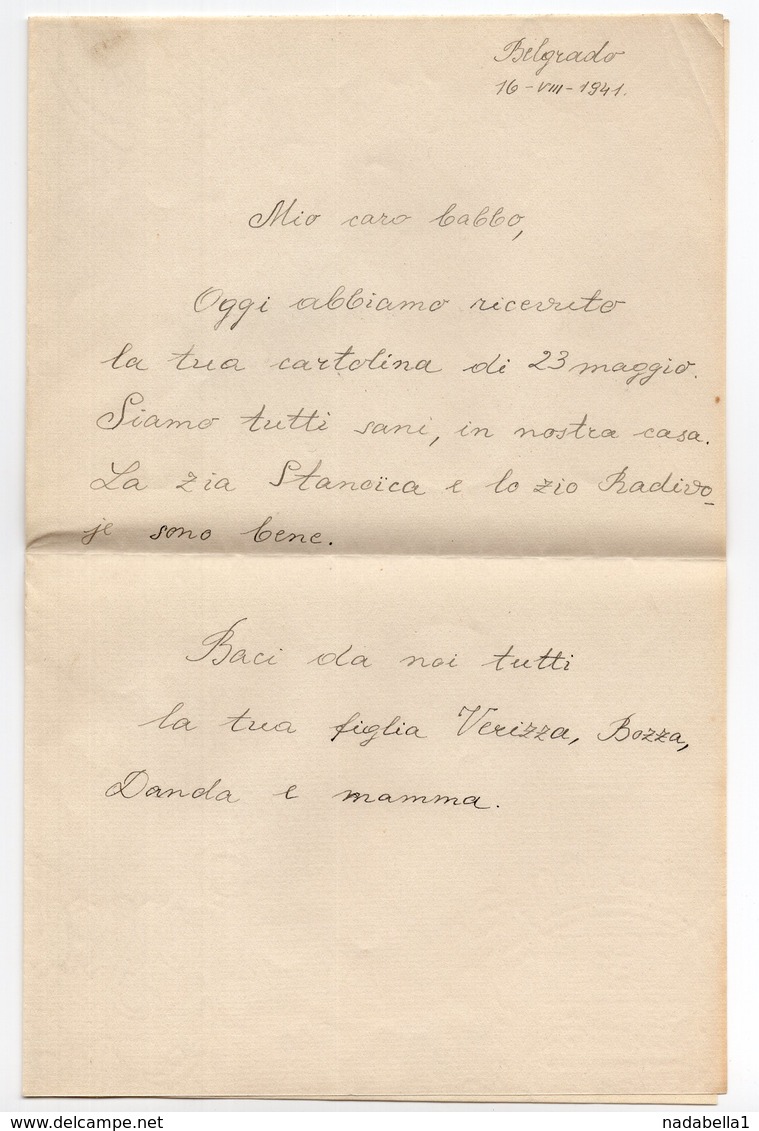 Belgrado
16-VIII-1941.
Mio caro babbo,
Oggi abbiamo ricevuto
la tua cartolina di 23 maggio.
Siamo tutti sani, in nostra casa.
La zia Stanoïca e lo zio Radivo-
je sono bene.
Baci da noi tutti
la tua figlia Verizza, Bozza,
Danda e mamma.
www.delcampe.net
nadabella1